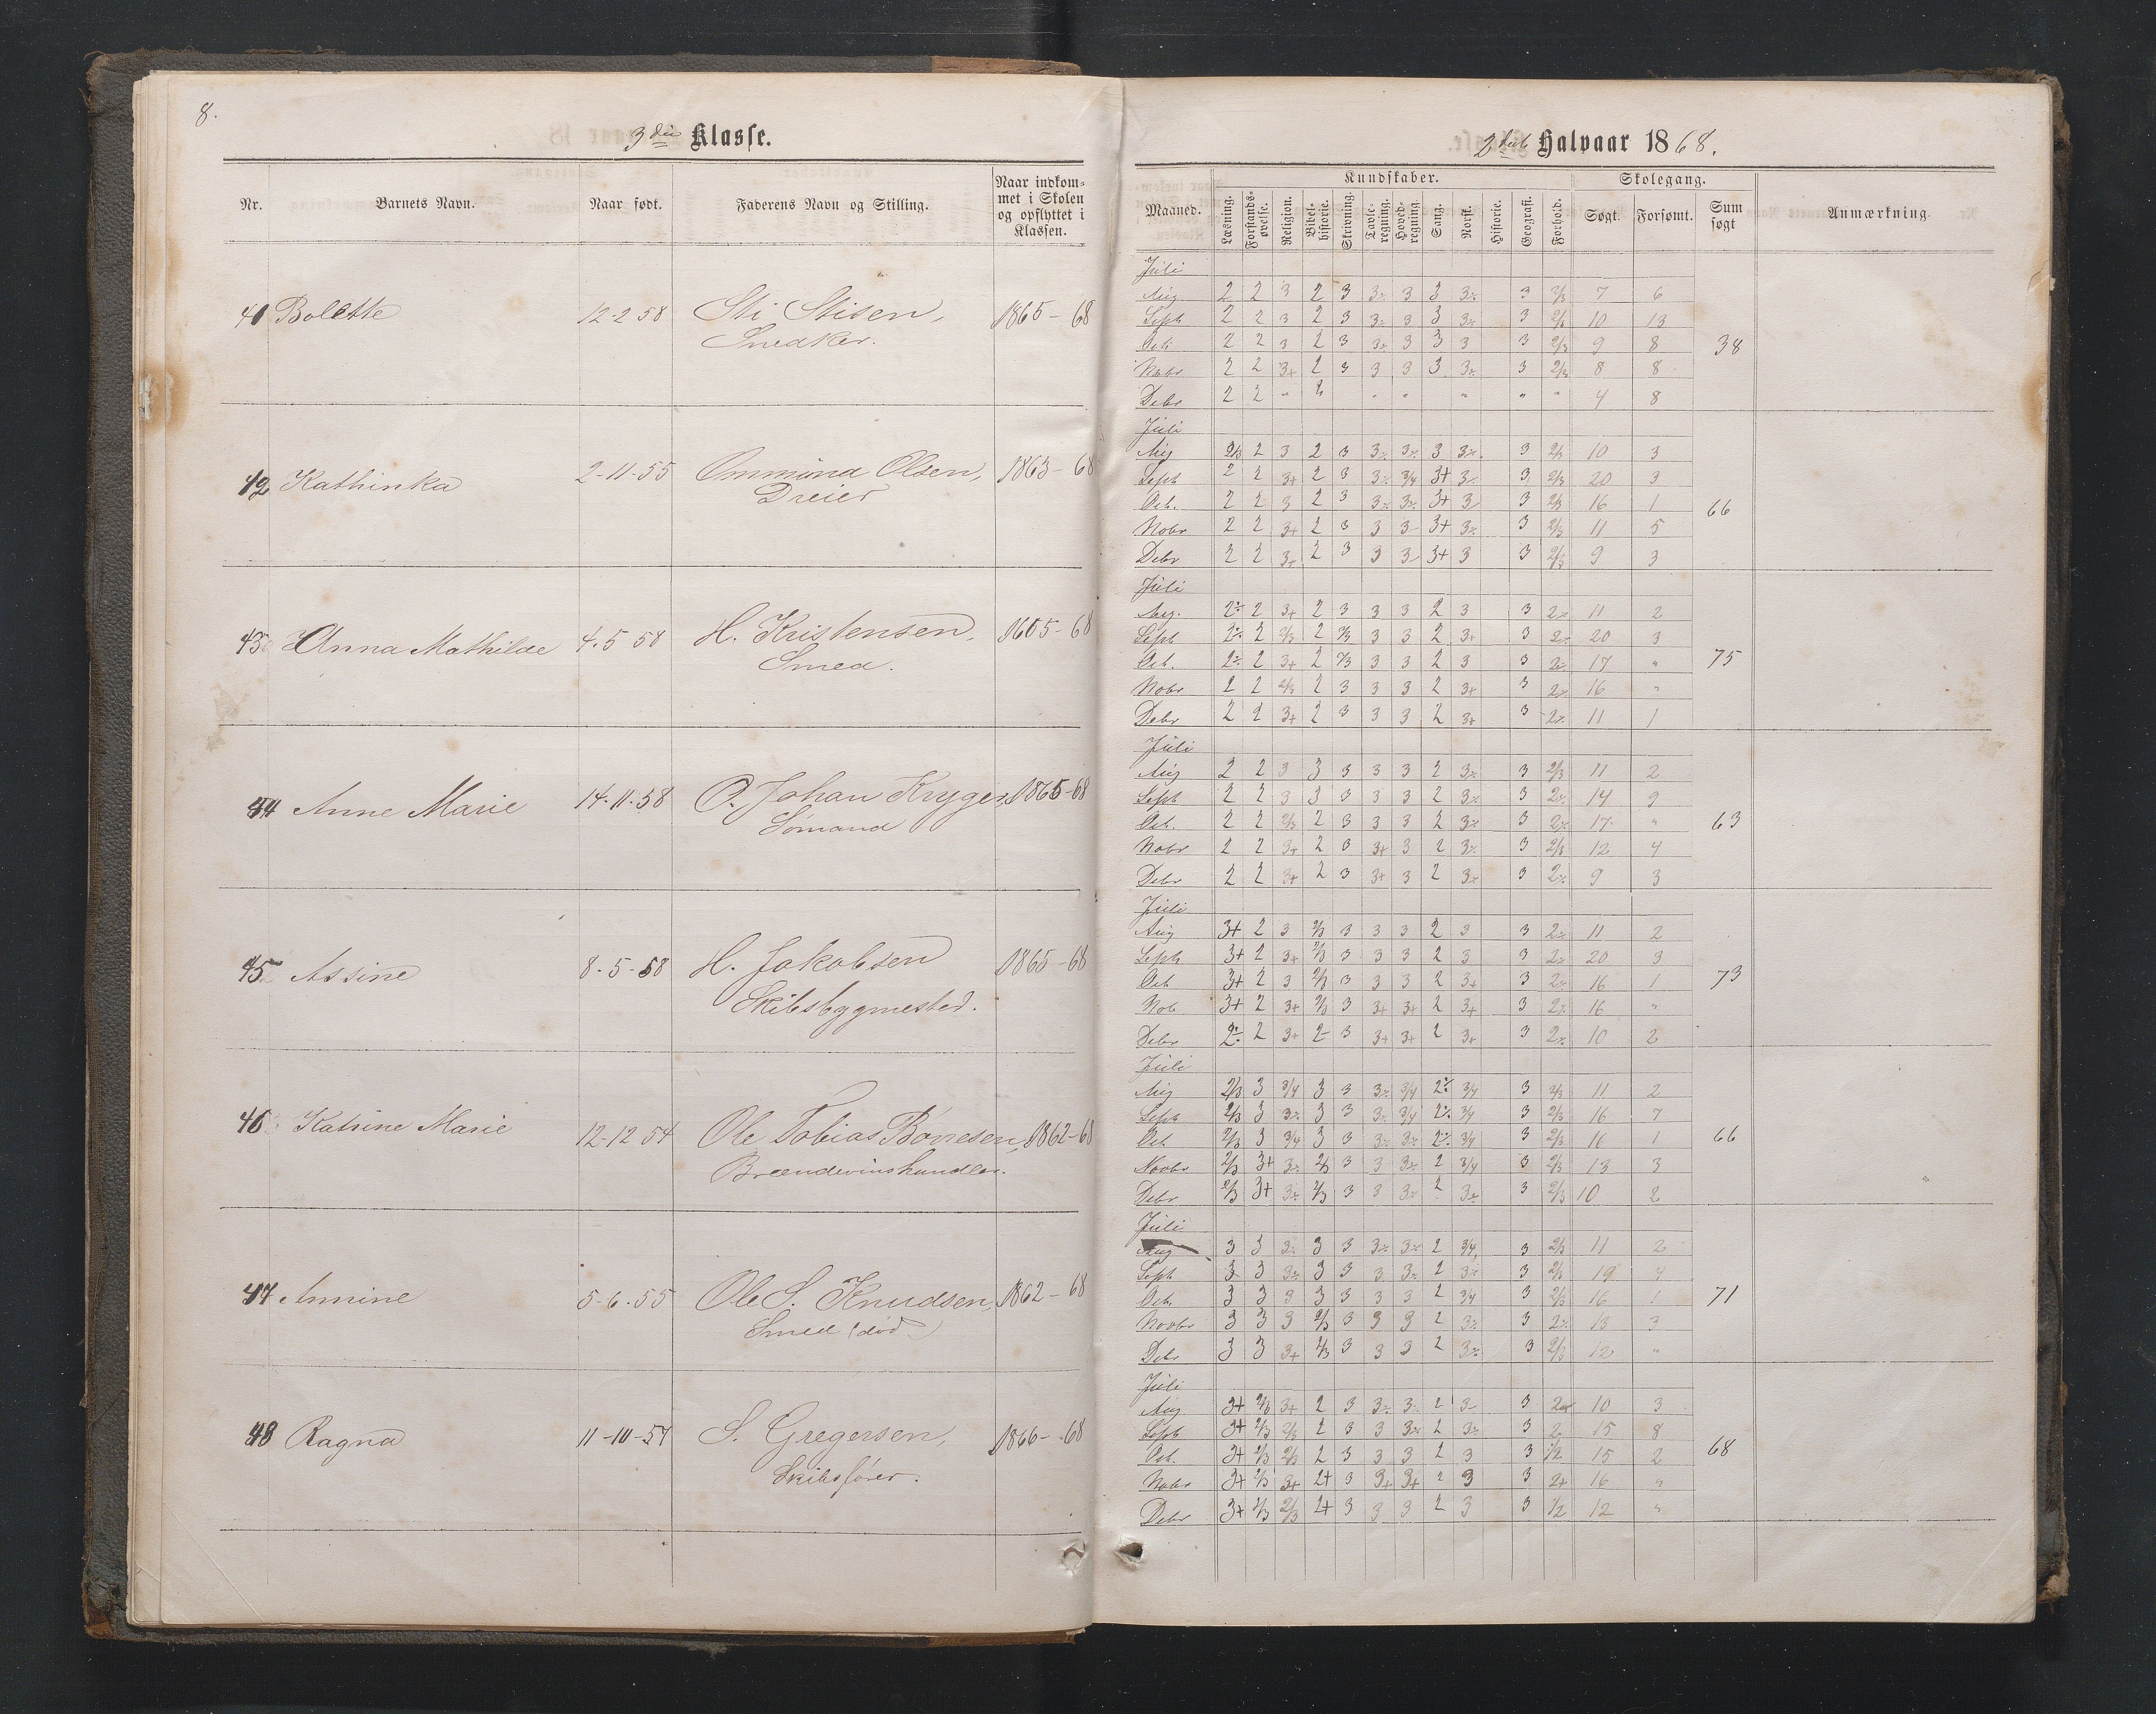 8.
3die Klasse.
Nr. Barnets Navn. Naar født. Faderens Navn og Stilling. Naar indkom-
met i Skolen
og opflyttet i
Klassen.
41 Bolette 12-2 58 Sti Stisen, 1865-68
Snedker.
42 Kathinka 2-11-55 Ommund Olsen, 1863-68
Dreier
43 Anna Mathilde 4.5 58 H. Kristensen, 1865-68
Smed.
44 Anne Marie 14.11.58 O. Johan Kryger, 1865-68
Sømand
45 Assine 8-5-58 H. Jakobsen 1865-68
Skibsbygmester.
46 Katrine Marie 12-12 54 Ole Tobias Børresen, 1862-68
Brændevinshandler.
47 Annine 5-6.55 Ole S. Knudsen, 1862-68
Smed (død)
48 Ragna 11-10-57 S. Gregersen, 1866-68
Skibsfører.
2det Halvaar 1868.
Maaned. Kundskaber. Skolegang. Sum søgt Anmærkning.
Læsning. Forstands-øvelse. Religion. Bibel-historie. Skrivning. Tavle-regning. Hoved-regning. Sang. Norsk. Historie. Geografi. Forhold. Søgt. Forsømt.
Juli
Aug 2 2 3 2 3 3÷ 3 3 3÷ 3 2/3 7 6
Septr 2 2 3 2 3 3÷ 3 3 3÷ 3 2/3 10 13
Oct. 2 2 3 2 3 3÷ 3 3 3 3 2/3 9 8 38
Nobr 2 2 3+ 2 3 3 3 3 3÷ 3 2/3 8 8
Debr 2 2 " 2 " " " " " 4 8
Juli
Aug 2/3 2 3 2 3 3÷ 3÷ 3 3÷ 3 2/3 10 3
Septr 2 2 3+ 2 3 3÷ 3/4 3+ 3 3 2/3 20 3
Oct. 2 2 3 2 3 3÷ 3÷ 3+ 3 3 2/3 16 1 66
Nobr 2 2 3+ 2 3 3 3 3+ 3÷ 3 2/3 11 5
Debr 2 2 3+ 2 3 3 3 3+ 3 3 2/3 9 3
Juli
Aug. 2÷ 2 3+ 2 3 3 3 2 3 3 2÷ 11 2
Septr 2÷ 2 2/3 2 2/3 3 3 2 3+ 3 2÷ 20 3
Oct. 2÷ 2 3+ 2 2/3 3 3 2 3 3 2÷ 17 " 75
Nobr 2 2 2/3 2 3 3 3 2 3+ 3 2÷ 16 "
Debr 2 2 3+ 2 3 3 3 2 3+ 3 2÷ 11 1
Juli
Aug 2 2 3 3 3 3 3 2 3÷ 3 2/3 11 2
Septr 2 2 3 3 3 3 3 2 3÷ 3 2÷ 14 9
Oct. 2 2 2/3 2 3 3 3 2 3÷ 3 2÷ 17 " 63
Nobr 2 2 3+ 2 3 3+ 3 2 3÷ 3 2/3 12 4
Debr 2 2 3+ 2 3 3+ 3 2 3÷ 3 2÷ 9 3
Juli
Aug 3+ 2 3 2/3 3 3 3 2 3 3 2÷ 11 2
Septr 3+ 2 3+ 2/3 3 3 3 2 3 3 2÷ 20 3
Oct 3+ 2 3 2/3 3 3 3 2 3+ 3 2÷ 16 1 73
Nob 3+ 2 3+ 2/3 3 3+ 3+ 2 3+ 3 2÷ 16 "
Debr 2÷ 2 3+ 2- 3 3+ 3+ 2 3+ 3 2÷ 10 2
Juli
Aug 2/3 3 3/4 3 3 3÷ 3/4 2÷ 3/4 3 2/3 11 2
Septr 2/3 3 3÷ 3 3 3÷ 3/4 2÷ 3/4 3 2/3 16 7
Oct. 2/3 3 3/4 3 3 3÷ 3÷ 2÷ 3/4 3 2/3 16 1 66
Novbr 2/3 3+ 3÷ 2/3 3 3 3÷ 2 3/4 3 2/3 13 3
Debr 2/3 3+ 3÷ 2/3 3 3 3÷ 2 3÷ 3 2/3 10 2
Juli
Aug 3 3 3÷ 3 3 3÷ 3÷ 2 3/4 3 2/3 11 2
Septr 3 3 3÷ 3 3 3 3÷ 2 3÷ 3 2/3 19 4
Oct. 3 3 3 3 3 3 3 2 3/4 3 2/3 16 1 71
Novbr 3 3 3 2/3 3 3 3 2 3÷ 3 2÷ 13 3
Debr 3 3 3+ 2/3 3 3 3 2 3÷ 3 2/3 12 "
Juli
Aug 3+ 2/3 3+ 2 3 3÷ 3 2 3 3 10 3
Septr 3+ 2/3 2/3 2 3 3 3÷ 2 3÷ 3 2 15 8
Oct. 3+ 2/3 2/3 2 3 3 3 2 3 3 1/2 15 2 68
Nobr 3+ 2/3 3+ 2+ 3 3+ 3+ 2 3 3 2+ 16 "
Debr 3+ 2/3 2/3 2+ 3 3 3 2 3 3 1/2 12 "